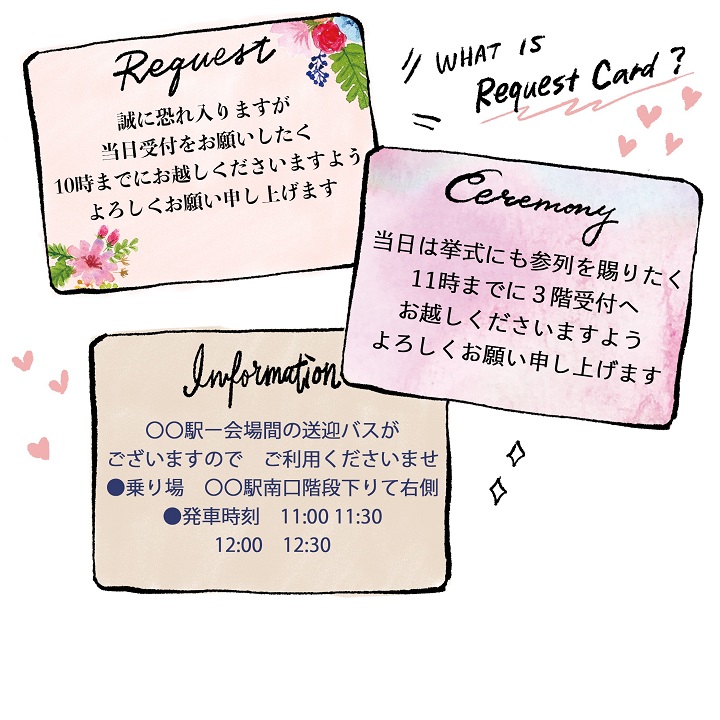 WHAT IS
Request Card?
Request
誠に恐れ入りますが
当日受付をお願いしたく
10時までにお越しくださいますよう
よろしくお願い申し上げます
Ceremony
当日は挙式にも参列を賜りたく
11時までに３階受付へ
お越しくださいますよう
よろしくお願い申し上げます
Information
〇〇駅ー会場間の送迎バスが
ございますので　ご利用くださいませ
●乗り場　〇〇駅南口階段下りて右側
●発車時刻　11:00 11:30
12:00　12:30